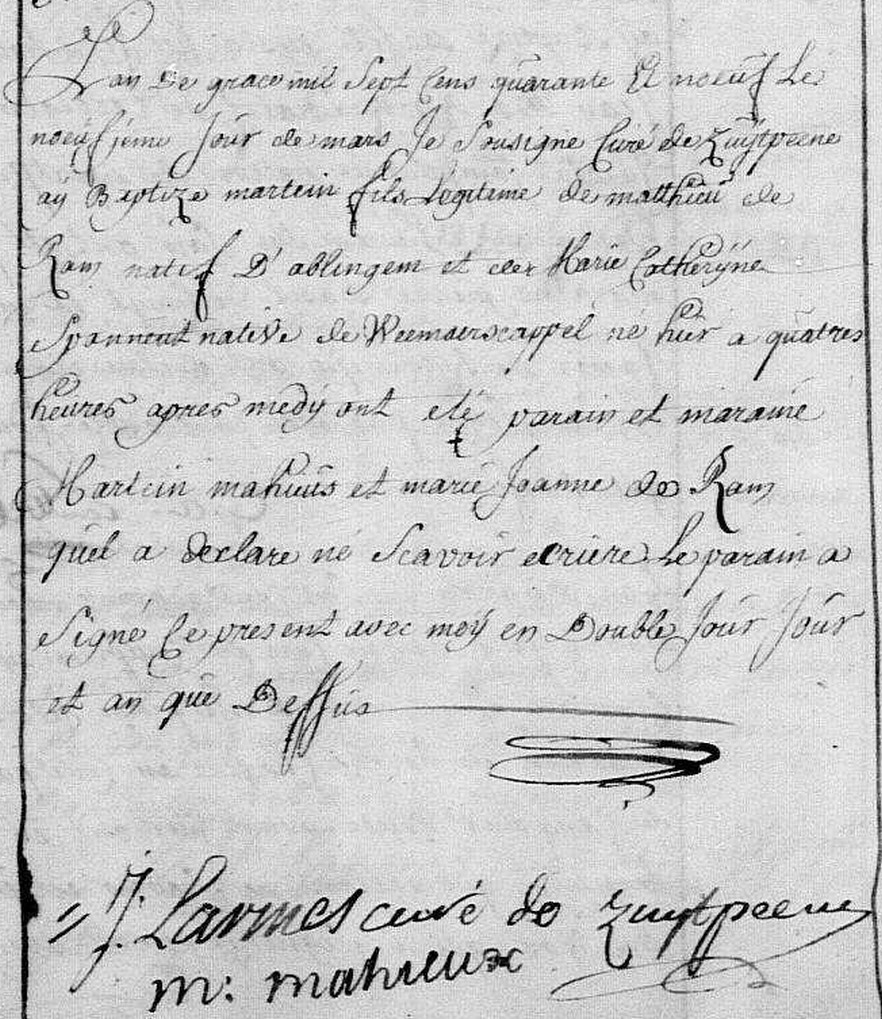 Lan de grace mil Sept Cens quarante Et noeuf Le
noeufieme Jour de mars Je Sousigne Curé de Zuÿtpeene
aÿ Baptize martein fils Legitime de matthieu de
Ram natif D'ablingem et de Marie Catherÿne
Spanneut native de Weemaerscappel né hier a quatres
heures apres medÿ ont eté parain et maraine
Martein mahieus et marie Joanne de Ram
quel a declare né Scavoir ecriere Le parain a
Signé Ce present avec moÿ en Double Jour Jour
et an que Dessus
J. Larmes curé de Zuytpeene
m: mahieux